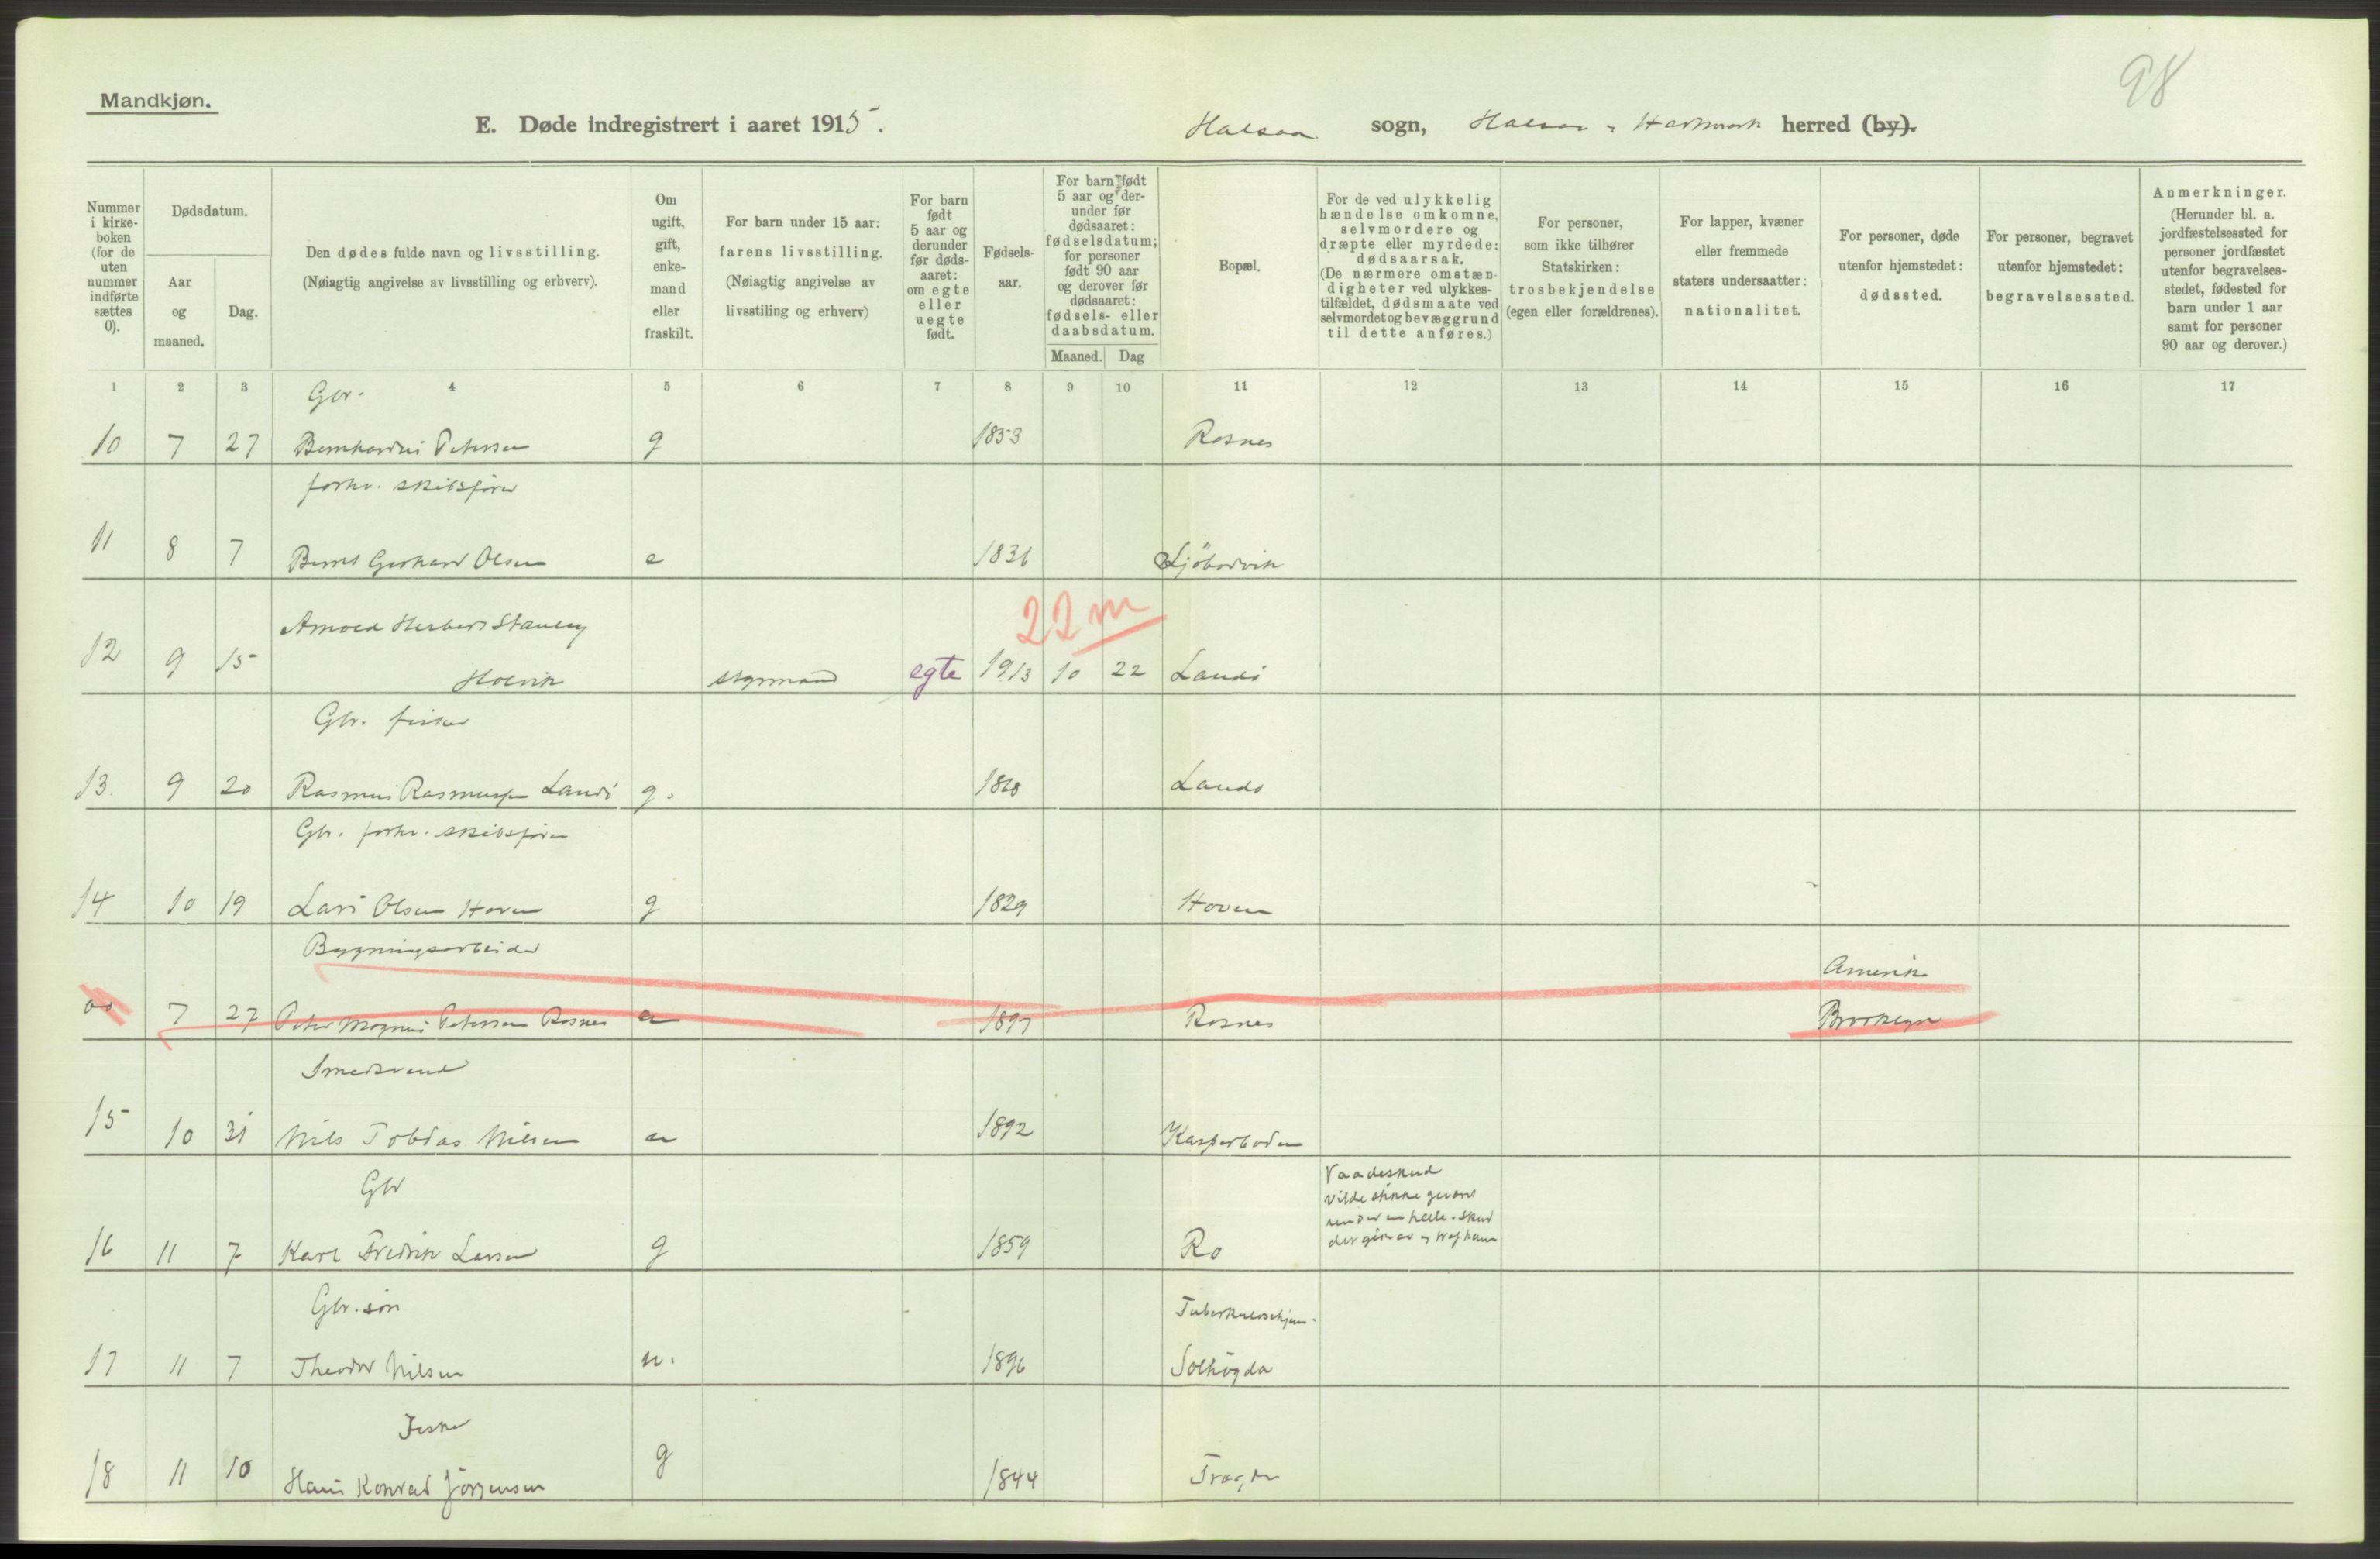 98
Mandkjøn.
E. Døde indregistrert i aaret 1915.
Halsaa sogn, Halsaa o Hartmark herred (by).
Nummer i kirkeboken (for de uten nummer indførte sættes 0).
Dødsdatum.
Aar og maaned.
Dag.
Den dødes fulde navn og livsstilling.
(Nøiagtig angivelse av livsstilling og erhverv).
Om ugift, gift, enkemand eller fraskilt.
For barn under 15 aar: farens livsstilling.
(Nøiagtig angivelse av livsstiling og erhverv)
For barn født 5 aar og derunder før dødsaaret: om egte eller uegte født.
Fødselsaar.
For barn født 5 aar og derunder før dødsaaret: fødselsdatum; for personer født 90 aar og derover før dødsaaret: fødsels- eller daabsdatum.
Maaned. Dag
Bopæl.
For de ved ulykkelig hændelse omkomne, selvmordere og dræpte eller myrdede: dødsaarsak.
(De nærmere omstændigheter ved ulykkestilfældet, dødsmaate ved selvmordet og bevæggrund til dette anføres.)
For personer, som ikke tilhører Statskirken: trosbekjendelse (egen eller forældrenes).
For lapper, kvæner eller fremmede staters undersaatter: nationalitet.
For personer, døde utenfor hjemstedet: dødssted.
For personer, begravet utenfor hjemstedet: begravelsessted.
Anmerkninger.
(Herunder bl. a. jordfæstelsessted for personer jordfæstet utenfor begravelsesstedet, fødested for barn under 1 aar samt for personer 90 aar og derover.)
1 2 3 4 5 6 7 8 9 10 11 12 13 14 15 16 17
Gbr.
10 7 27 Bernhardus Petersen g 1853 Rosnes
forhv. skibsfører
11 8 7 Gerhard Olsen e 1836
22 m
Arnold Herbert Stanley
12 9 15 Holvik styrmand egte 1913 10 22 Landö
Gbr. fisker
13. 9 20 Rasmus Rasmussen Landö g. 1868 Landö
Gbr. forhv. skibsfører
14 10 19 Lars Olsen Hoven g 1829 Hoven
Bygningsarbeider Amerik
00 7 27 Peter Magnus Petersen Rosnes u 1897 Rosnes Brooklyn
Smedsvend
15 10 31 Nils Tobias Nilsen u 1892 Kasperboden
Gbr Vaadeskud
vilde stikke geværet
under en skud
der gik av og traf ham
16 11 7 Karl Fredrik Larsen g 1859 Ro
Gbr. søn Tuberkulosehjem.
17 11 7 Theodor Nilsen u. 1896 Solhögda
Fisker
18 11 10 Hans Konrad Jörgensen g 1844